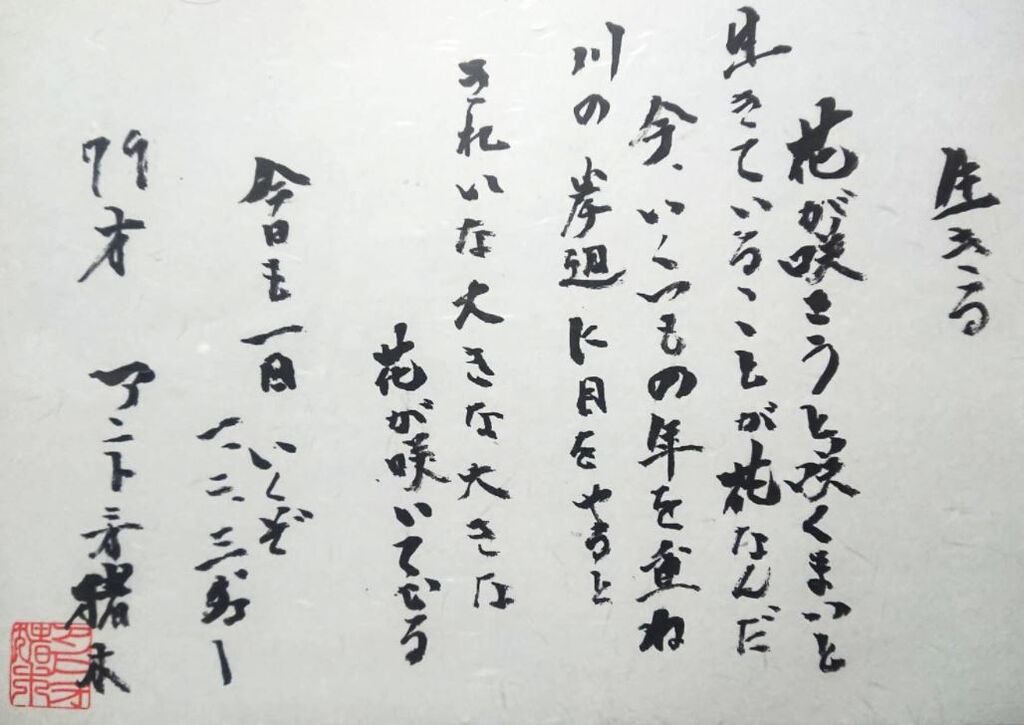 生きる
花が咲こうと咲くまいと
生きていることが花なんだ
今、いくつもの年を重ね
川の岸辺に目をやると
きれいな大きな大きな
花が咲いている
今日も一日 いくぞ
一、二、三、ダー
79才 アントニオ猪木